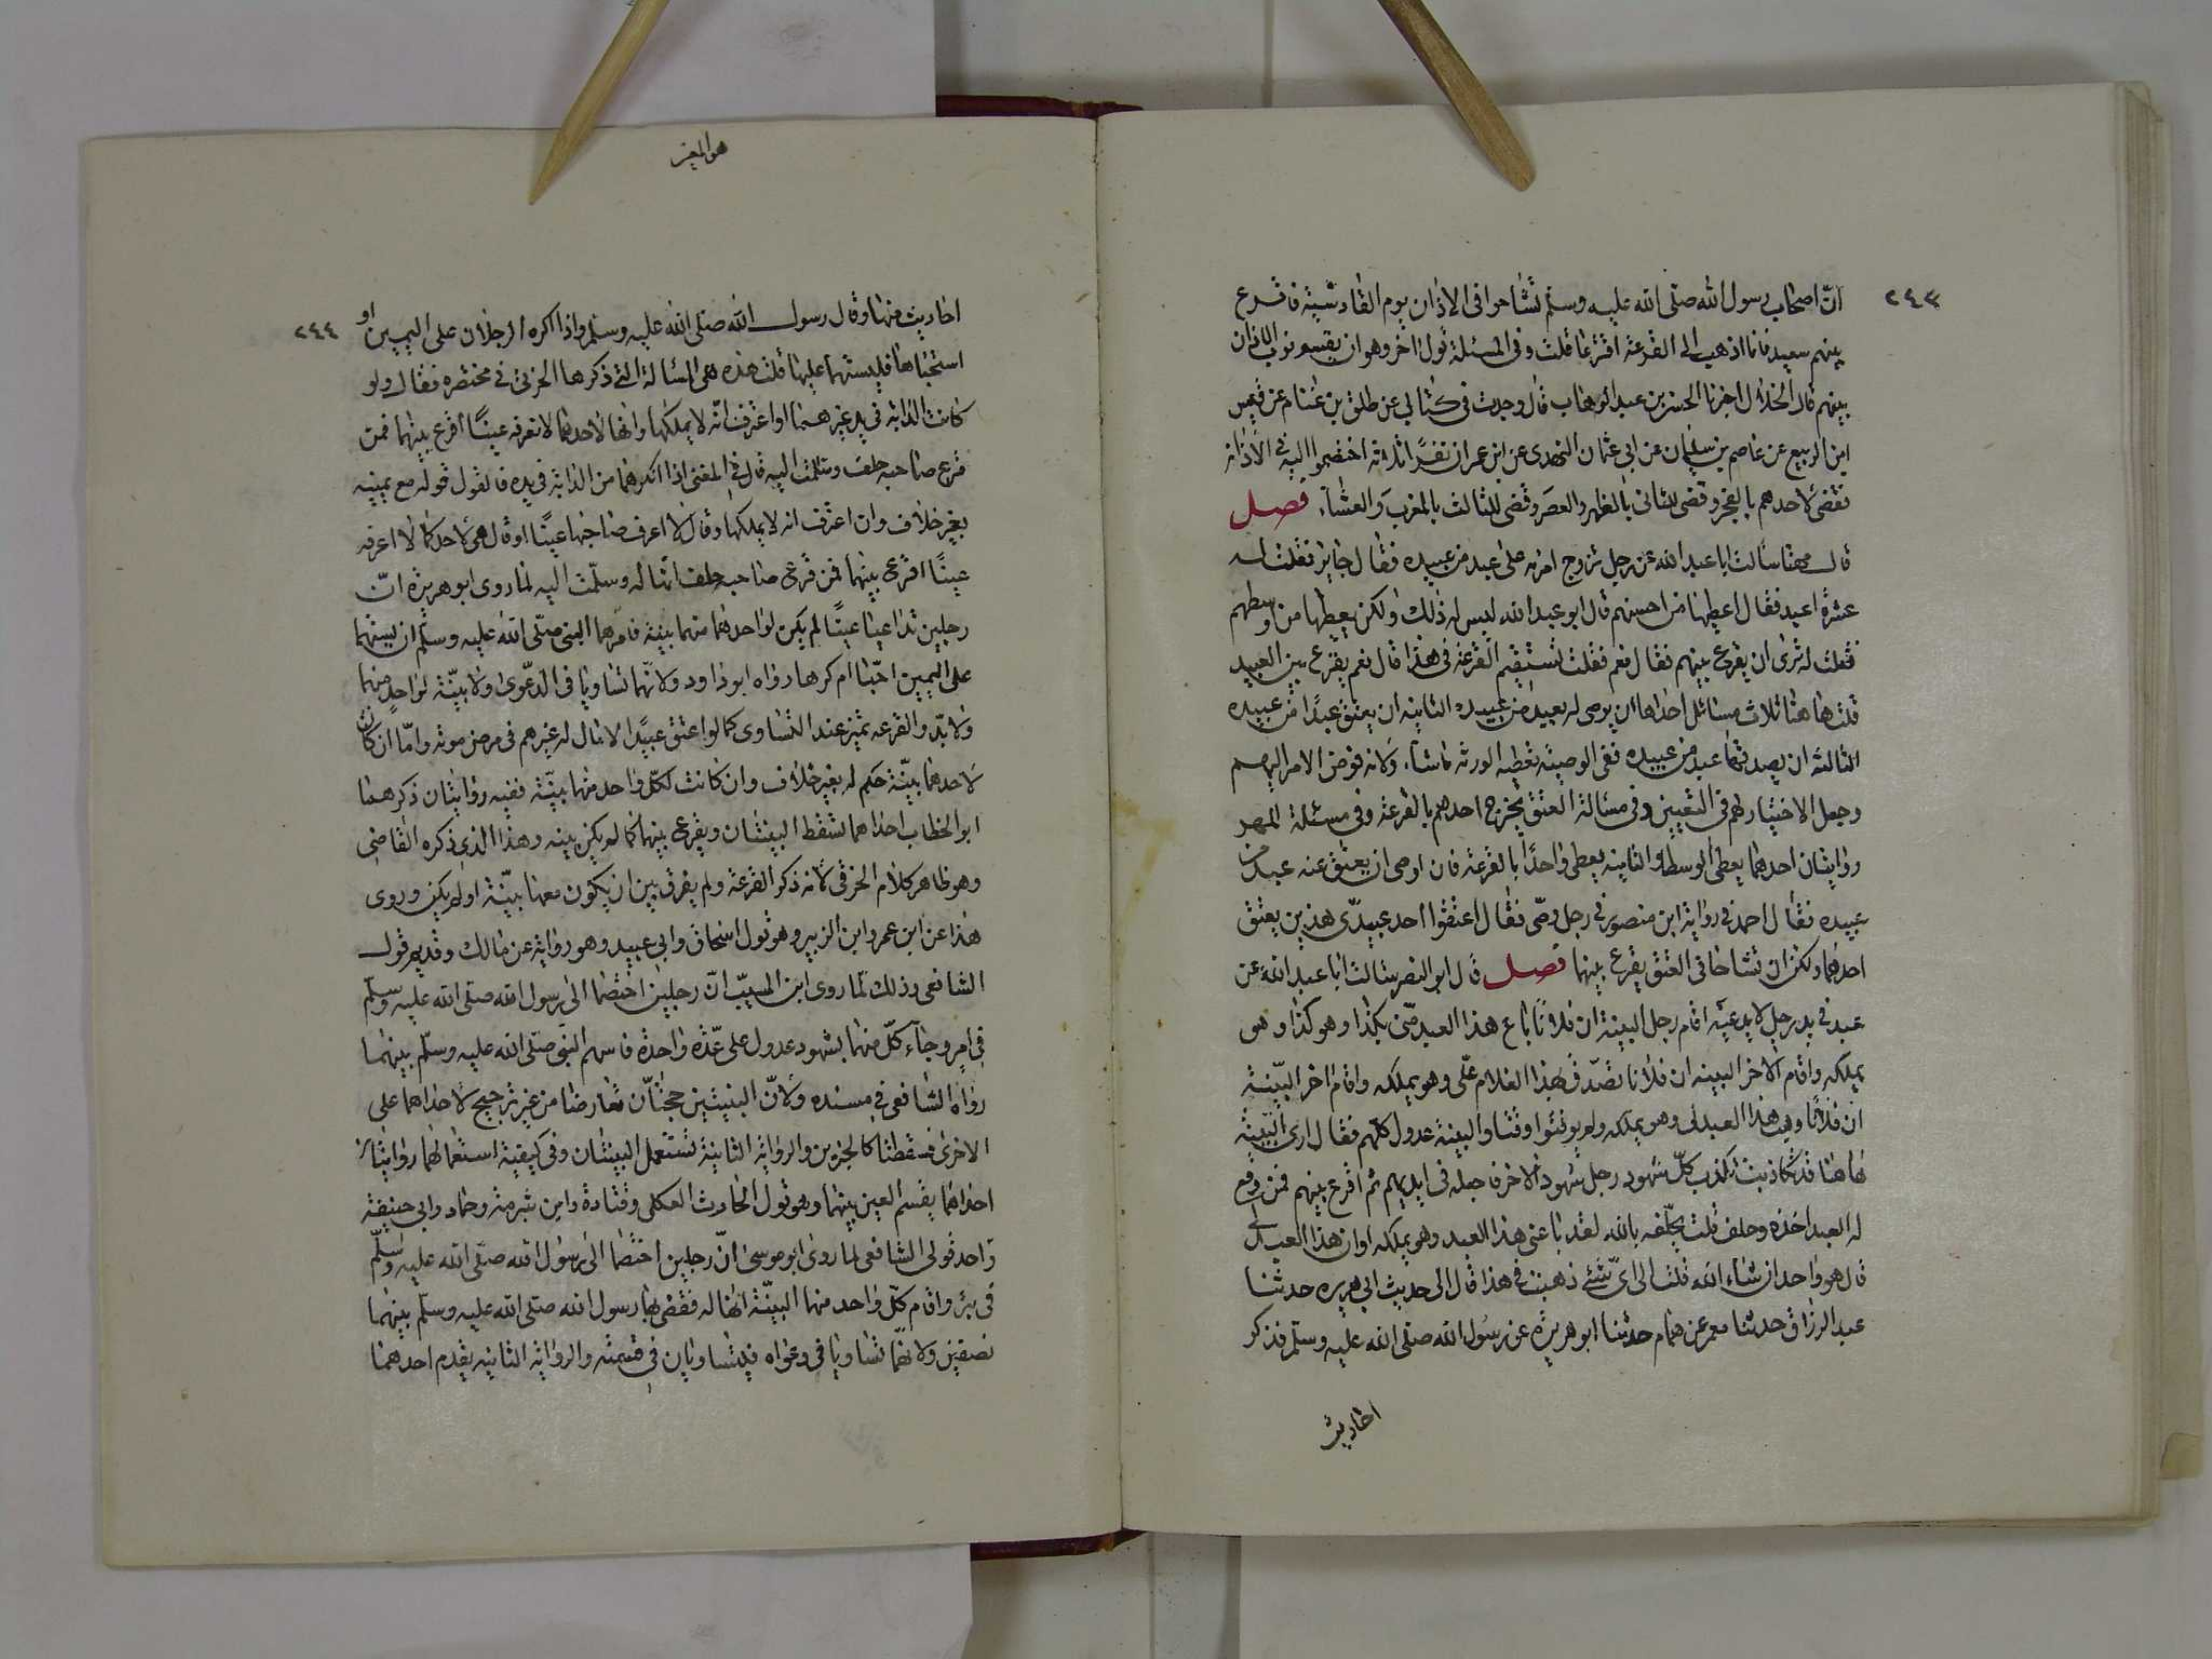 ٢٤٣
انّ اصحاب رسول الله صلى الله عليه وسلم تشاحوا فى الاذان يوم القادسية فاقرع
بينهم سعيد فانا اذهب الى القرعة اقترعا قلت وفى المسئلة قول اخر وهو ان يقسم نوب الاذان
بينهم قال الخلال اخبرنا الحسن بن عبد الوهاب قال وجدت فى كتاب لي عن طلق بن غنام عن قيس
ابن الربيع عن عاصم بن سليمان عن ابى عثمان النهدى عن ابن عمر ان نفرًا ثلاثة اختصموا اليه فى الاذان
فقضى لاحدهم بالفجر وقضى للثانى بالظهر والعصر وقضى للثالث بالمغرب والعشاء، فصل
قال مهنا سالت ابا عبد الله عن رجل تزوج امرئة على عبد من عبيده فقال جايز فقلت له
عشرة اعبد فقال اعطيها من احسنهم قال ابو عبد الله ليس له ذلك ولكن يعطيها من اوسطهم
فقلت له ترى ان يقرع بينهم فقال نعم فقلت تستقيم القرعة فى هذا قال نعم يقرع بين العبيد
قلت هاهنا ثلاث مسائل احداها ان يوصى له بعبد من عبيده الثانيه ان يعتق عبدًا من عبيده
الثالثة ان يصدقها عبد من عبيده ففى الوصية تعطيه الورثه ماشاء، ولانه فوض الامر اليهم
وجعل الاختيار لهم فى التعيين وفى مسالة العتق يخرج احدهم بالقرعة وفى مسئلة المهر
روايتان احدهما يعطى الوسط والثانيه يعطى واحدًا بالقرعة فان اوصى ان يعتق عنه عبد من
عبيده فقال احمد فى رواية ابن منصور فى رجل وصّى فقال اعتقوا احد عبيدّى هذين يعتق
احدهما ولكن ان تشاحا فى العتق يقرع بينهما فصل قال ابو النضر سالت ابا عبد الله عن
عبد فى يد رجل لا يدعيه اقام رجل البينة ان فلانًا باع هذا العبد منّى بكذا وهو كذا وهو
يملكه واقام الاخر البينه ان فلانا تصدّق بهذا الغلام علّى وهو يملكه واقام اخر البيّنة
ان فلانًا وهب هذا العبد لى وهو يملكه ولم يوقتوا وقتا والبينة عدول كلهم فقال ارى البيّنة
هاهنا قد تكاذبت يكذب كلّ شهود رجل شهود الاخر فاجعله فى ايديهم ثم اقرع بينهم فمن وقع
له العبد اخذه وحلف قلت يحلّفه بالله لقد باعنى هذا العبد وهو يملكه او ان هذا العبد لى
قال هو واحد ان شاء الله قلت الى اىّ شئ ذهبت فى هذا قال الى حديث ابى هريره حدثنا
عبد الرزاق حدثنا معمر عن همام حدثنا ابو هريرة عن رسول الله صلى الله عليه وسلّم فذكر
احاديث
هو المعين
٢٤٤
احاديث منها وقال رسول الله صلى الله عليه وسلم واذا اكره الرجلان على اليمين او
استحباها فليستهما عليها قلت هذه هى المسالة التى ذكرها الخرقى فى مختصره فقال ولو
كانت الدابة فى يد غيرهما واعترف انّه لا يملكها وانها لاحدهما لا نعرفه عينًا اقرع بينهما فمن
قرع صاحبه حلف وسلّمت اليه قال فى المغنى اذا انكرهما من الدابة فى يده فالقول قوله مع يمينه
بغير خلاف وان اعترف انه لا يملكها وقال لا اعرف صاحبها عينًا او قال هى لاحدكما لا اعرفه
عينًا اقرع بينهما فمن قرع صاحبه حلف انّها له وسلّمت اليه لما روى ابو هريرة انّ
رجلين تداعيا عينًا لم يكن لواحدهما منهما بينة فامرهما النبى صلّى الله عليه وسلّم ان يستهما
على اليمين احبّا ام كرها رواه ابو داود ولانّهما تساويا فى الدعوى ولا بيّنة لواحدٍ منهما
ولا يد والقرعه تميز عند التساوى كما لو اعتق عبيدًا لا مال له غيرهم فى مرض موته وامّا ان كان
لاحدهما بيّنة حكم له بغير خلاف وان كانت لكلّ واحد منهما بيّنة ففيه روايتان ذكرهما
ابو الخطاب احداهما تسقط البينتان ويقرع بينهما كما لو لم يكن بينه وهذا الذى ذكره القاضى
وهو ظاهر كلام الخرقى لانه ذكر القرعة ولم يفرق بين ان يكون معهما بيّنة او لم يكن وروى
هذا عن ابن عمر وابن الزبير وهو قول اسحاق وابى عبيد وهو رواية عن مالك وقديم قول
الشافعى وذلك لما روى ابن المسيّب انّ رجلين اختصما الى رسول الله صلى الله عليه وسلّم
فى امرٍ وجاء كلّ منهما بشهود عدول على عدّة واحدة فاسهم النبى صلّى الله عليه وسلّم بينهما
رواه الشافعى فى مسنده ولانّ البينتين حجتان تعارضتا من غير ترجيح لاحداهما على
الاخرى فسقطتا كالخبرين والرواية الثانية تستعمل البينتان وفى كيفية استعمالهما روايتان
احداهما يقسم العين بينهما وهو قول الحارث العكلى وقتادة وابن شبرمة وحماد وابى حنيفة
واحد قولى الشافعى لما روى ابو موسى انّ رجلين اختصما الى رسول الله صلّى الله عليه وسلّم
فى بئر واقام كلّ واحد منهما البيّنة انها له فقضى بها رسول الله صلى الله عليه وسلّم بينهما
نصفين ولانّهما تساويا فى دعواه فيتساويان فى قسمته والرواية الثانيه يقدم احدهما